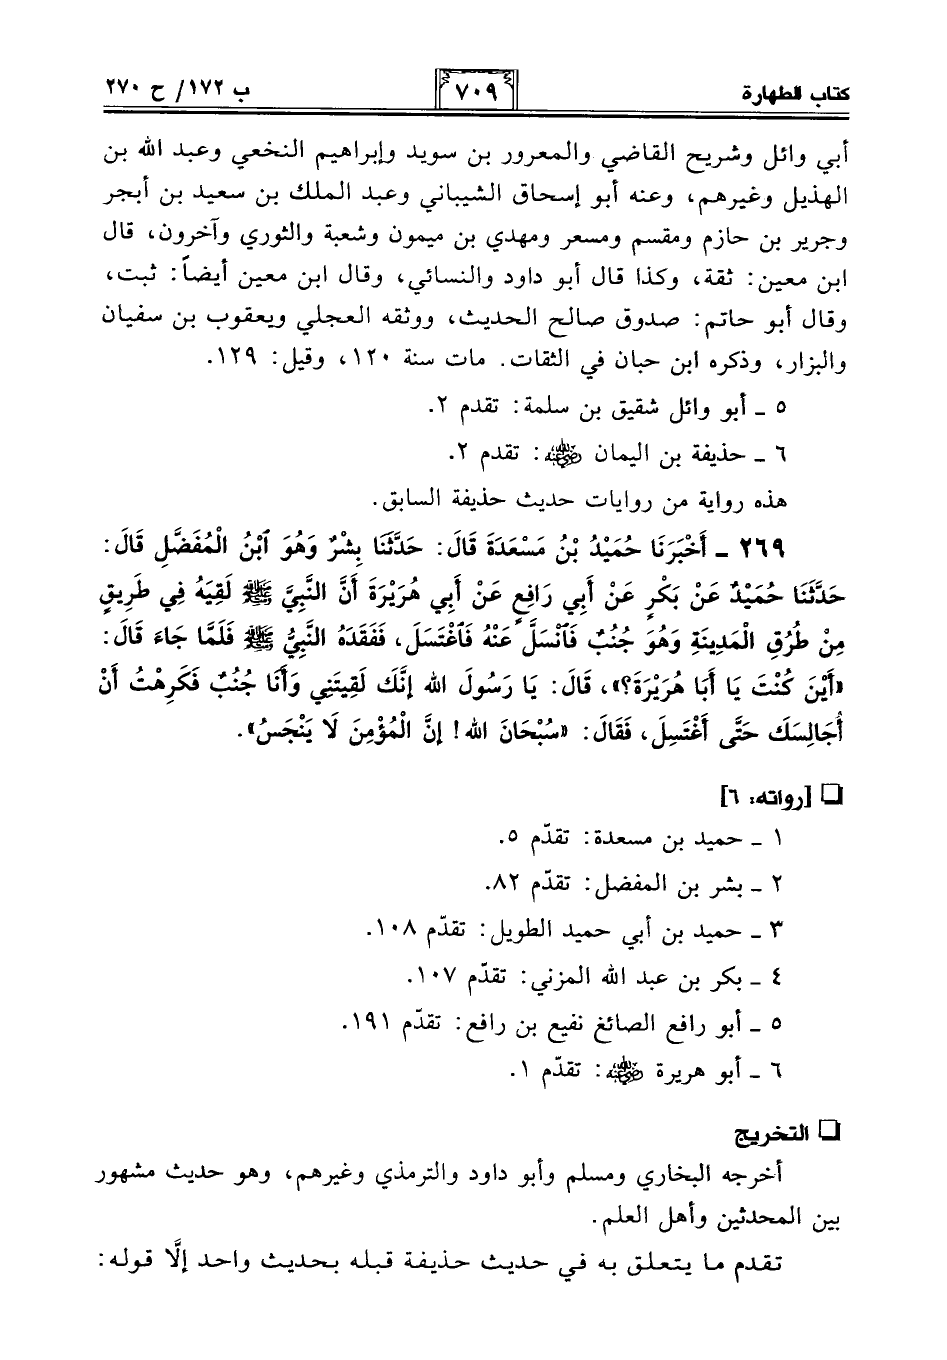 كتاب الطهارة ٧٠٩ ب ١٧٢/ ح ٢٧٠
أبي وائل وشريح القاضي والمعرور بن سويد وإبراهيم النخعي وعبد الله بن
الهذيل وغيرهم، وعنه أبو إسحاق الشيباني وعبد الملك بن سعيد بن أبجر
وجرير بن حازم ومقسم ومسعر ومهدي بن ميمون وشعبة والثوري وآخرون، قال
ابن معين: ثقة، وكذا قال أبو داود والنسائي، وقال ابن معين أيضاً: ثبت،
وقال أبو حاتم: صدوق صالح الحديث، ووثقه العجلي ويعقوب بن سفيان
والبزار، وذكره ابن حبان في الثقات. مات سنة ١٢٠، وقيل: ١٢٩.
٥ ـ أبو وائل شقيق بن سلمة: تقدم ٢.
٦ ـ حذيفة بن اليمان رضي الله عنه: تقدم ٢.
هذه رواية من روايات حديث حذيفة السابق.
٢٦٩ ـ أَخْبَرَنَا حُمَيْدُ بْنُ مَسْعَدَةَ قَالَ: حَدَّثَنَا بِشْرٌ وَهُوَ ٱبْنُ الْمُفَضَّلِ قَالَ:
حَدَّثَنَا حُمَيْدٌ عَنْ بَكْرٍ عَنْ أَبِي رَافِعٍ عَنْ أَبِي هُرَيْرَةَ أَنَّ النَّبِيَّ ﷺ لَقِيَهُ فِي طَرِيقٍ
مِنْ طُرُقِ الْمَدِينَةِ وَهُوَ جُنُبٌ فَٱنْسَلَّ عَنْهُ فَٱغْتَسَلَ، فَفَقَدَهُ النَّبِيُّ ﷺ فَلَمَّا جَاءَ قَالَ:
«أَيْنَ كُنْتَ يَا أَبَا هُرَيْرَةَ؟»، قَالَ: يَا رَسُولَ الله إِنَّكَ لَقِيتَنِي وَأَنَا جُنُبٌ فَكَرِهْتُ أَنْ
أُجَالِسَكَ حَتَّى أَغْتَسِلَ، فَقَالَ: «سُبْحَانَ الله! إِنَّ الْمُؤْمِنَ لَا يَنْجَسُ».
❏ [رواته: ٦]
١ ـ حميد بن مسعدة: تقدّم ٥.
٢ ـ بشر بن المفضل: تقدّم ٨٢.
٣ ـ حميد بن أبي حميد الطويل: تقدّم ١٠٨.
٤ ـ بكر بن عبد الله المزني: تقدّم ١٠٧.
٥ ـ أبو رافع الصائغ نفيع بن رافع: تقدّم ١٩١.
٦ ـ أبو هريرة رضي الله عنه: تقدّم ١.
❏ التخريج
أخرجه البخاري ومسلم وأبو داود والترمذي وغيرهم، وهو حديث مشهور
بين المحدثين وأهل العلم.
تقدم ما يتعلق به في حديث حذيفة قبله بحديث واحد إلَّا قوله: